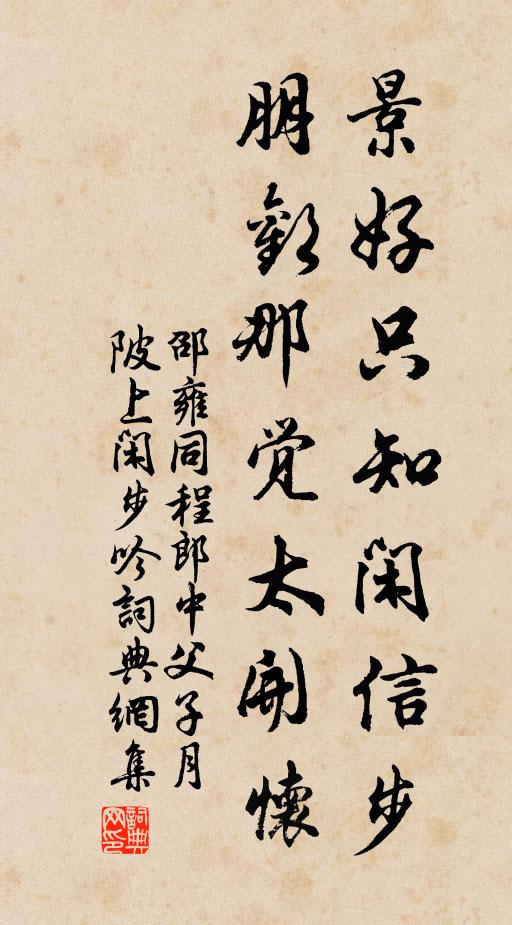 景好只知閑信步
朋歡那觉太開懷
邵雍同程郎中父子月
陂上閑步吟詞典網集
詞典网印